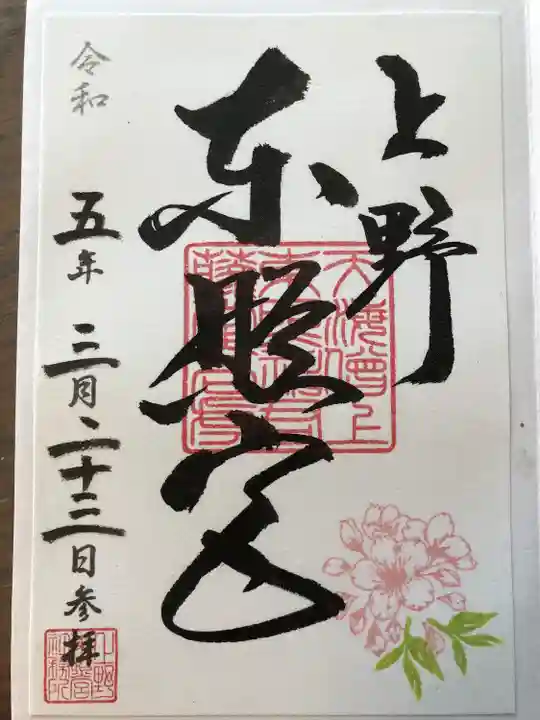 上野
東照宮
天海僧上
令和五年三月二十三日参拝